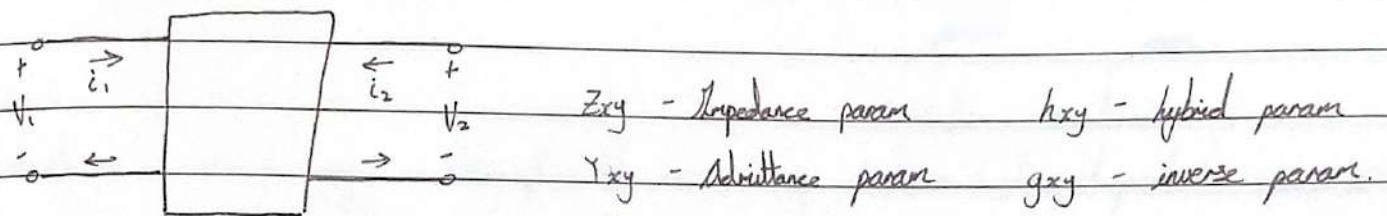 + → ← +
i₁ i₂
V₁ V₂ Zxy - Impedance param hxy - hybrid param
- ← → - Yxy - Admittance param gxy - inverse param.